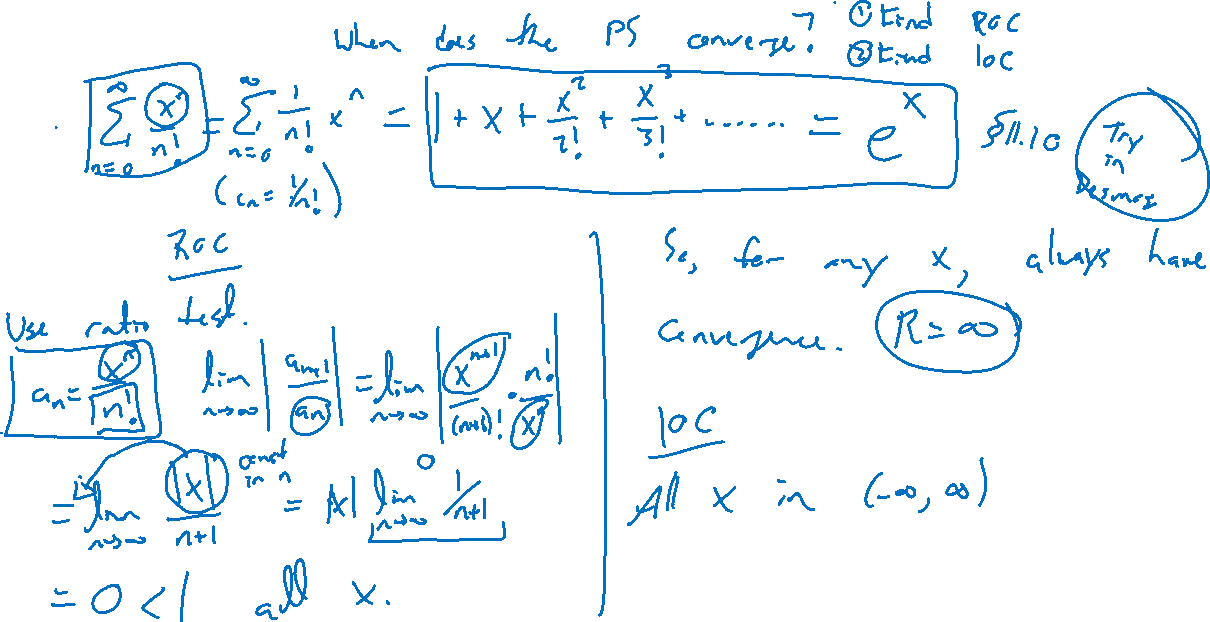 When does the PS converge? ① Find ROC
② Find IOC
∑_{n=0}^{∞} x^n/n! = ∑_{n=0}^{∞} 1/n! x^n = 1 + x + x^2/2! + x^3/3! + ...... = e^x §11.10 Try in Desmos
(c_n = 1/n!)
ROC
Use ratio test.
a_n = x^n/n! lim_{n→∞} |a_{n+1}/a_n| = lim_{n→∞} |x^{n+1}/(n+1)! · n!/x^n|
= lim_{n→∞} |x|/(n+1) const in n = |x| lim_{n→∞} 1/(n+1) 0
= 0 < 1 all x.
So, for any x, always have
convergence. R = ∞
IOC
All x in (-∞, ∞)